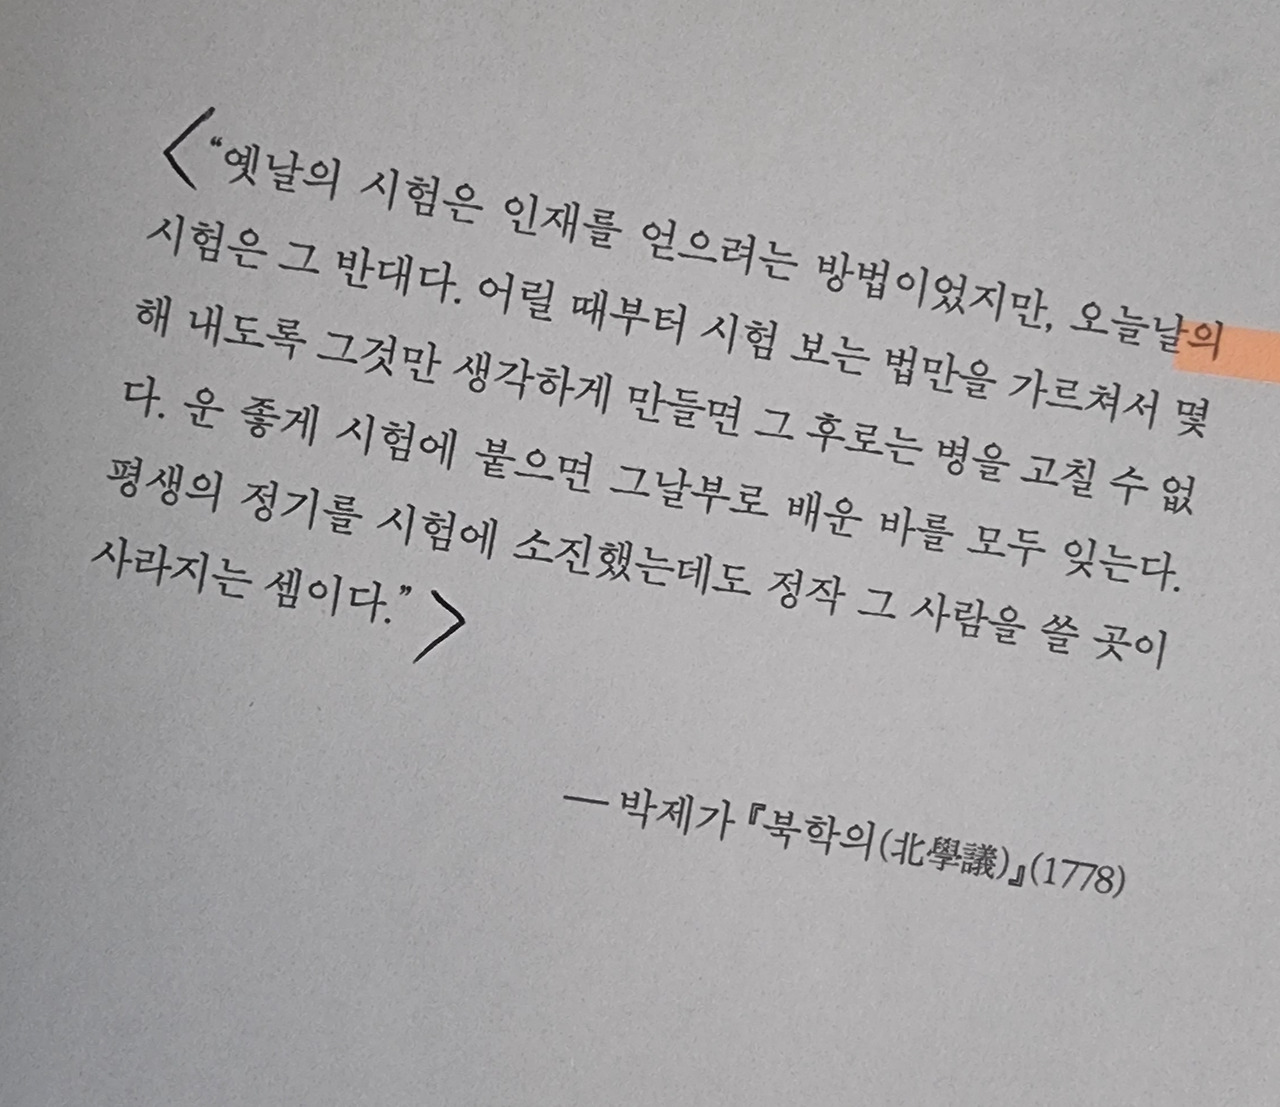 <“옛날의 시험은 인재를 얻으려는 방법이었지만, 오늘날의
시험은 그 반대다. 어릴 때부터 시험 보는 법만을 가르쳐서 몇
해 내도록 그것만 생각하게 만들면 그 후로는 병을 고칠 수 없
다. 운 좋게 시험에 붙으면 그날부로 배운 바를 모두 잊는다.
평생의 정기를 시험에 소진했는데도 정작 그 사람을 쓸 곳이
사라지는 셈이다.”>
― 박제가 『북학의(北學議)』(1778)